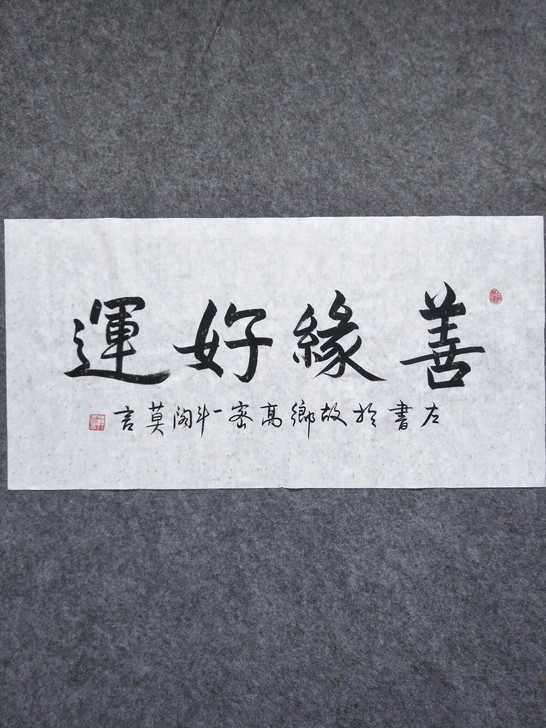 善緣好運
左書於故鄉高密一斗阁莫言